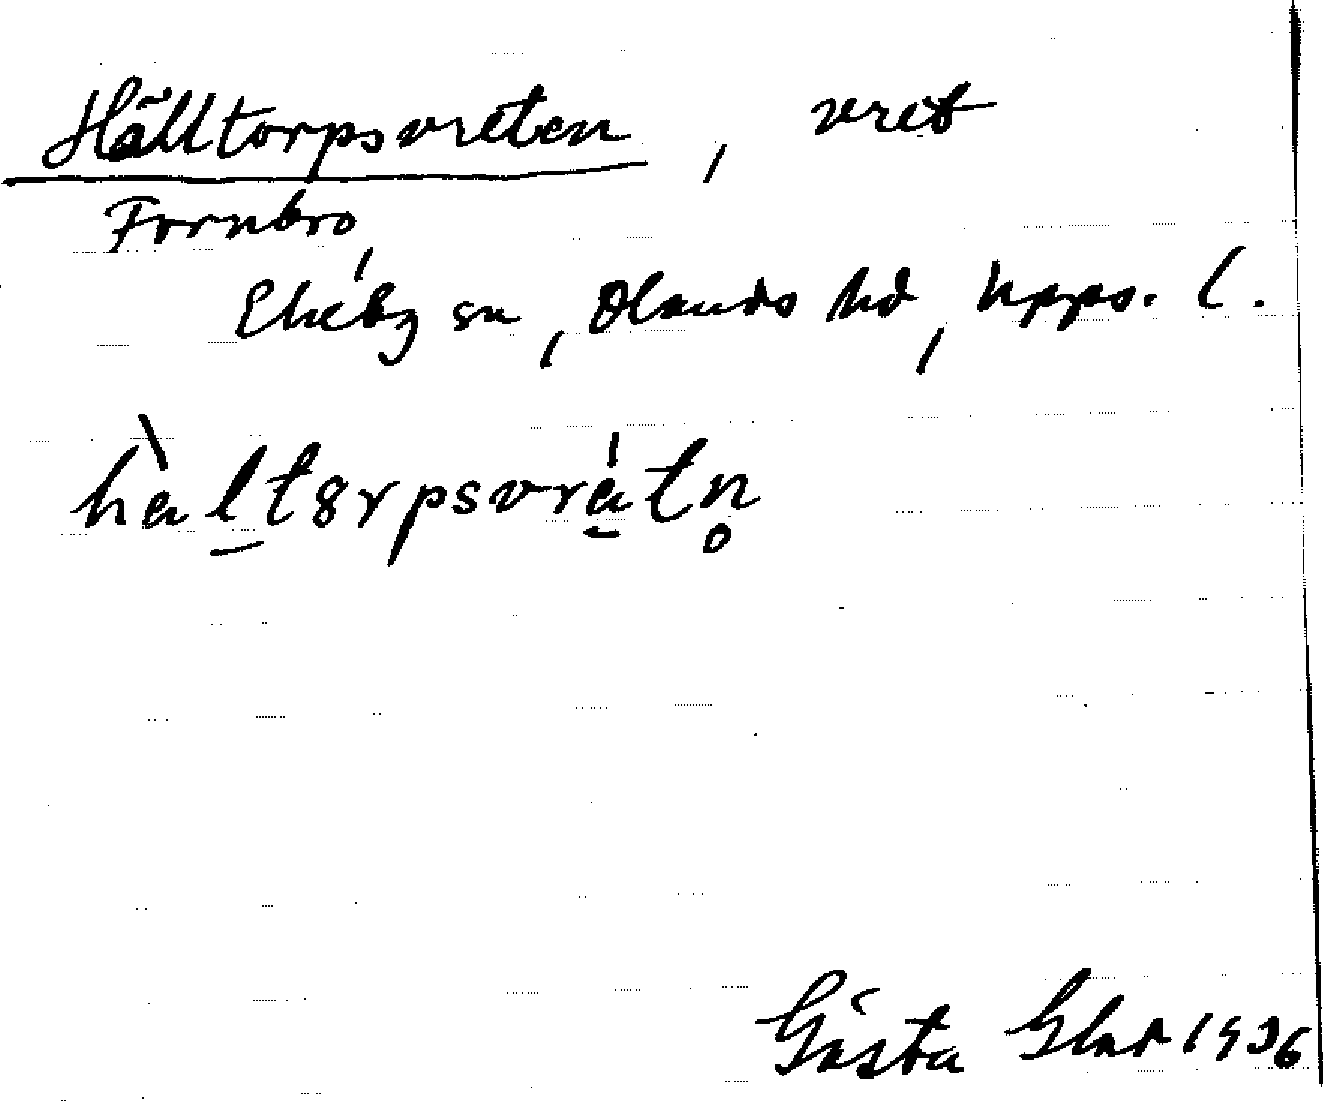 Hälltorpsvreten, vret
Fornbro,
Ekeby sn, Olands hd, Upps. l.
hàltorpsvrátn̥
Gösta Glad 1936